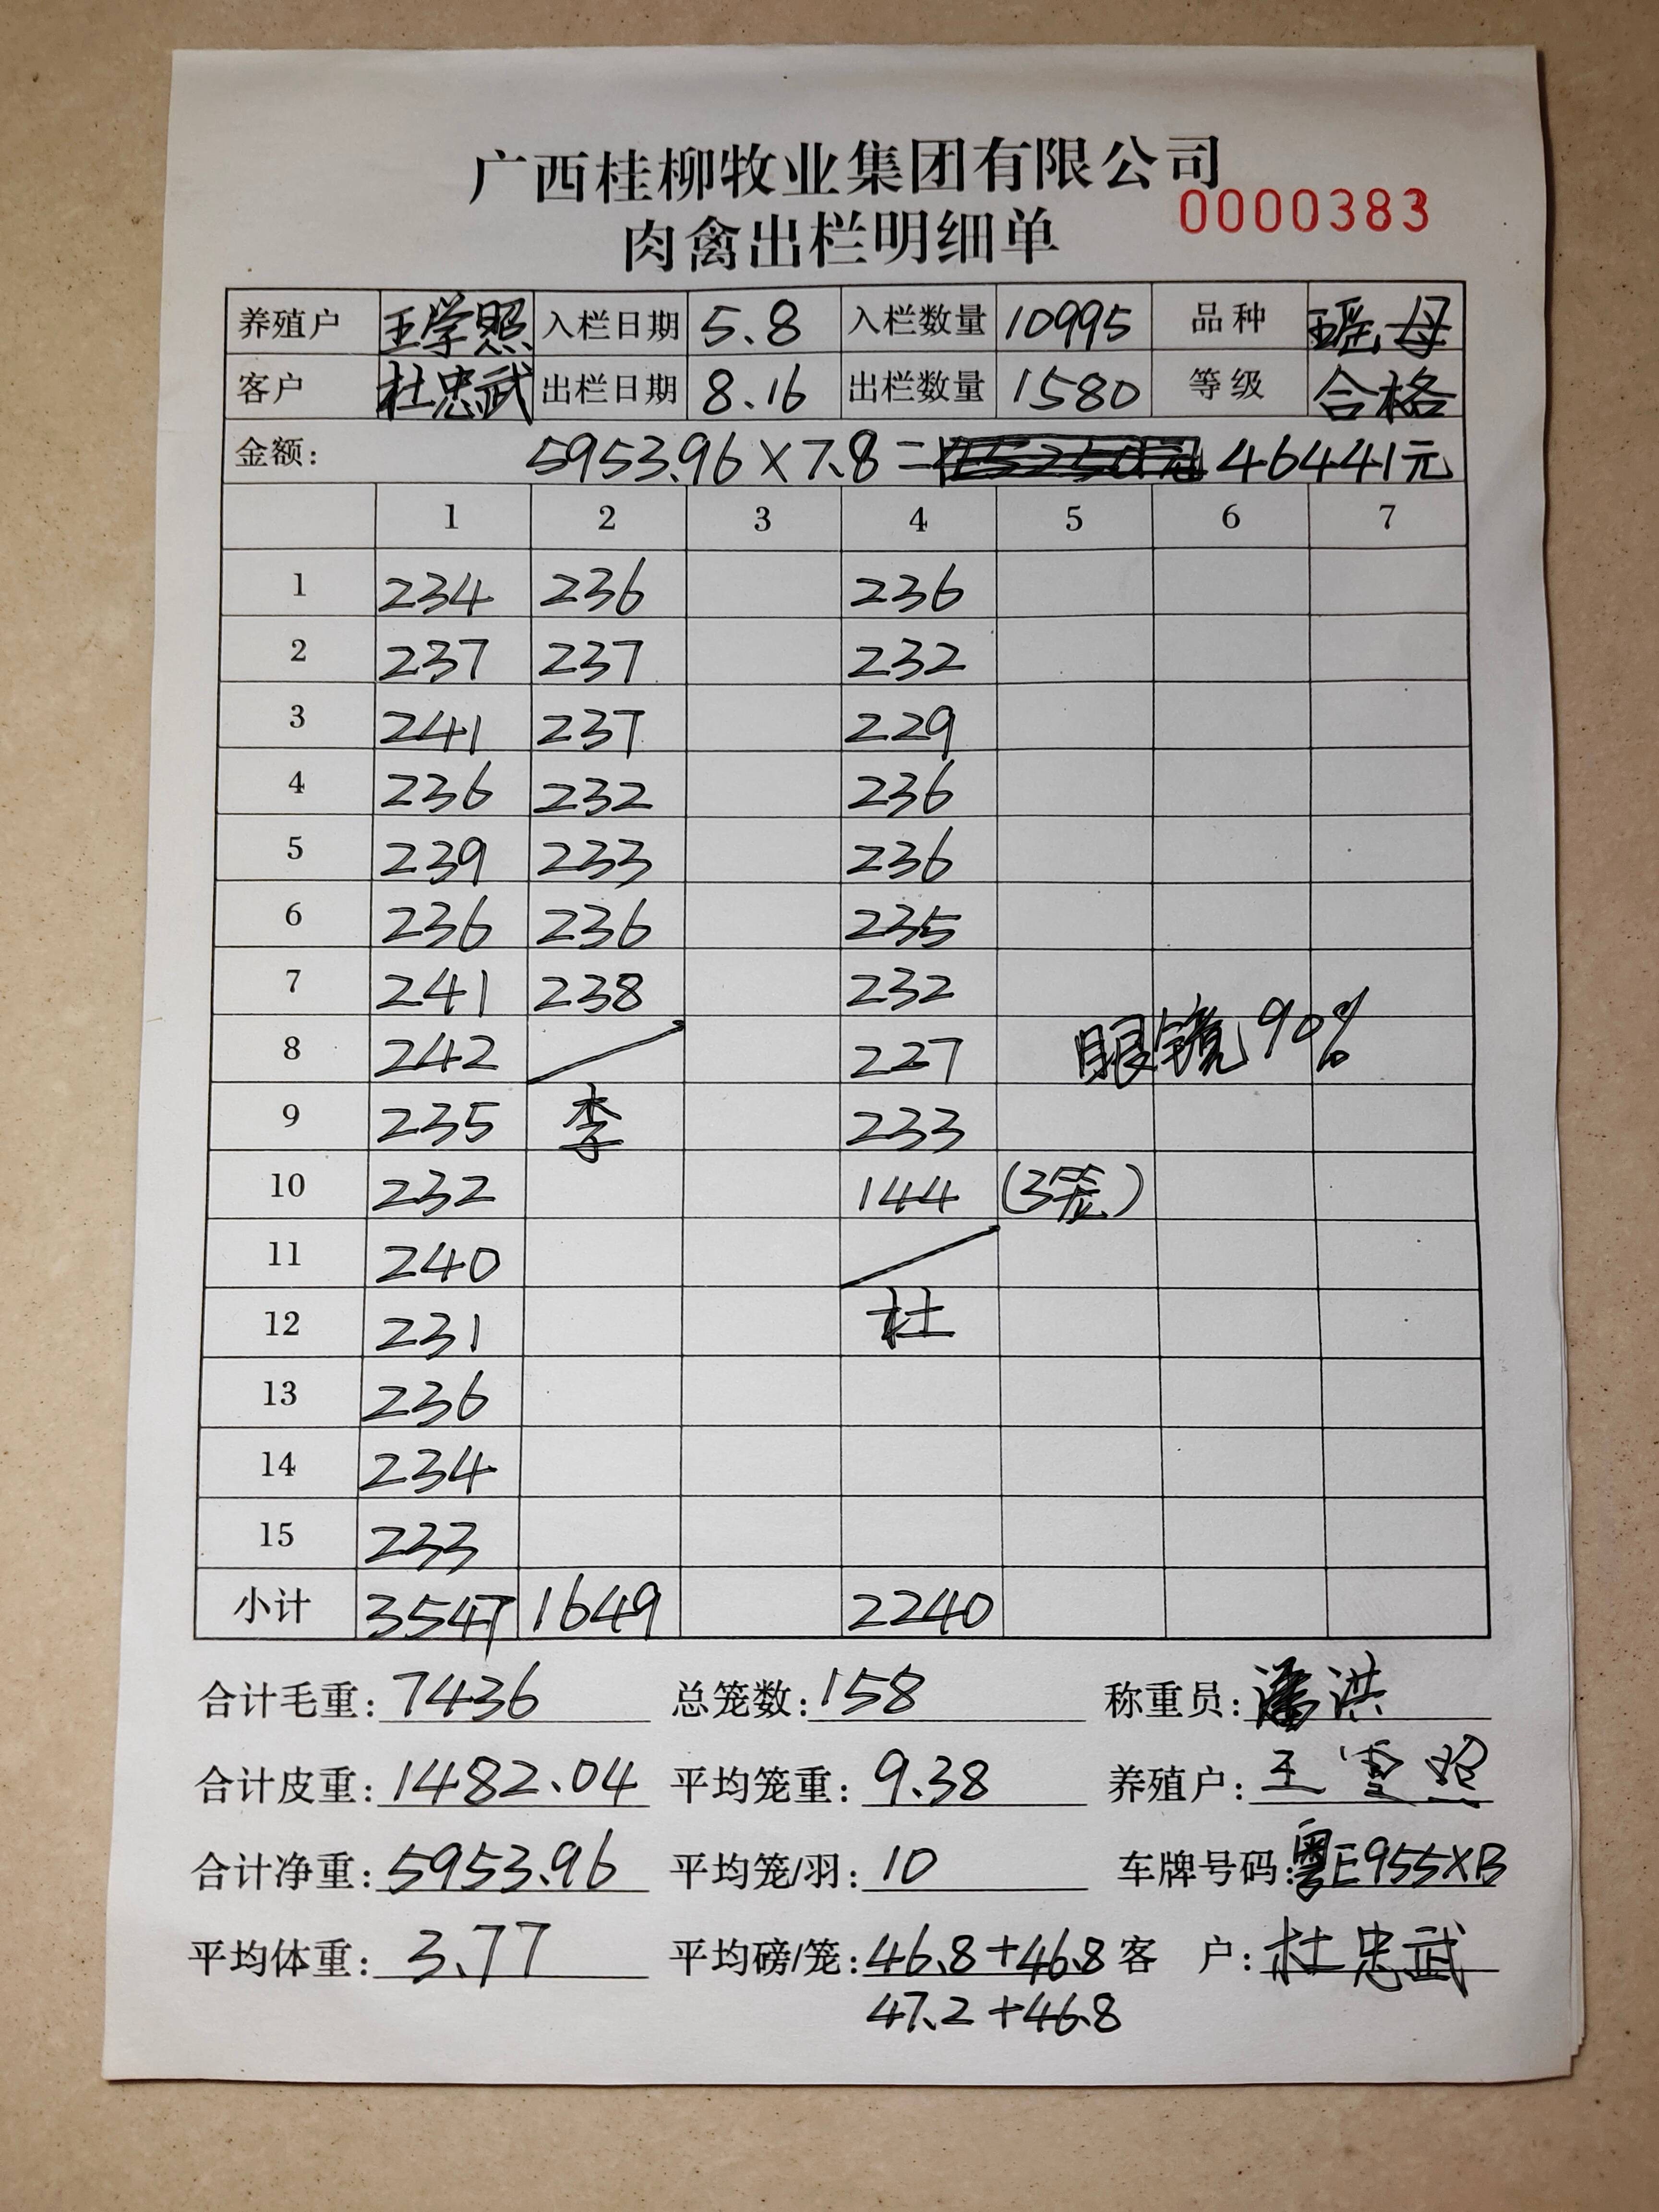 广西桂柳牧业集团有限公司
0000383
肉禽出栏明细单
养殖户 王学照 入栏日期 5.8 入栏数量 10995 品种 瑶母
客户 杜忠武 出栏日期 8.16 出栏数量 1580 等级 合格
金额: 5953.96×7.8= 46441元
1 2 3 4 5 6 7
1 234 236 236
2 237 237 232
3 241 237 229
4 236 232 236
5 239 233 236
6 236 236 235
7 241 238 232
8 242 227 眼镜90%
9 235 李 233
10 232 144 (3笼)
11 240
12 231 杜
13 236
14 234
15 233
小计 3547 1649 2240
合计毛重: 7436 总笼数: 158 称重员: 潘洪
合计皮重: 1482.04 平均笼重: 9.38 养殖户: 王学照
合计净重: 5953.96 平均笼/羽: 10 车牌号码: 粤E955XB
平均体重: 3.77 平均磅/笼: 46.8+46.8 客 户: 杜忠武
47.2+46.8